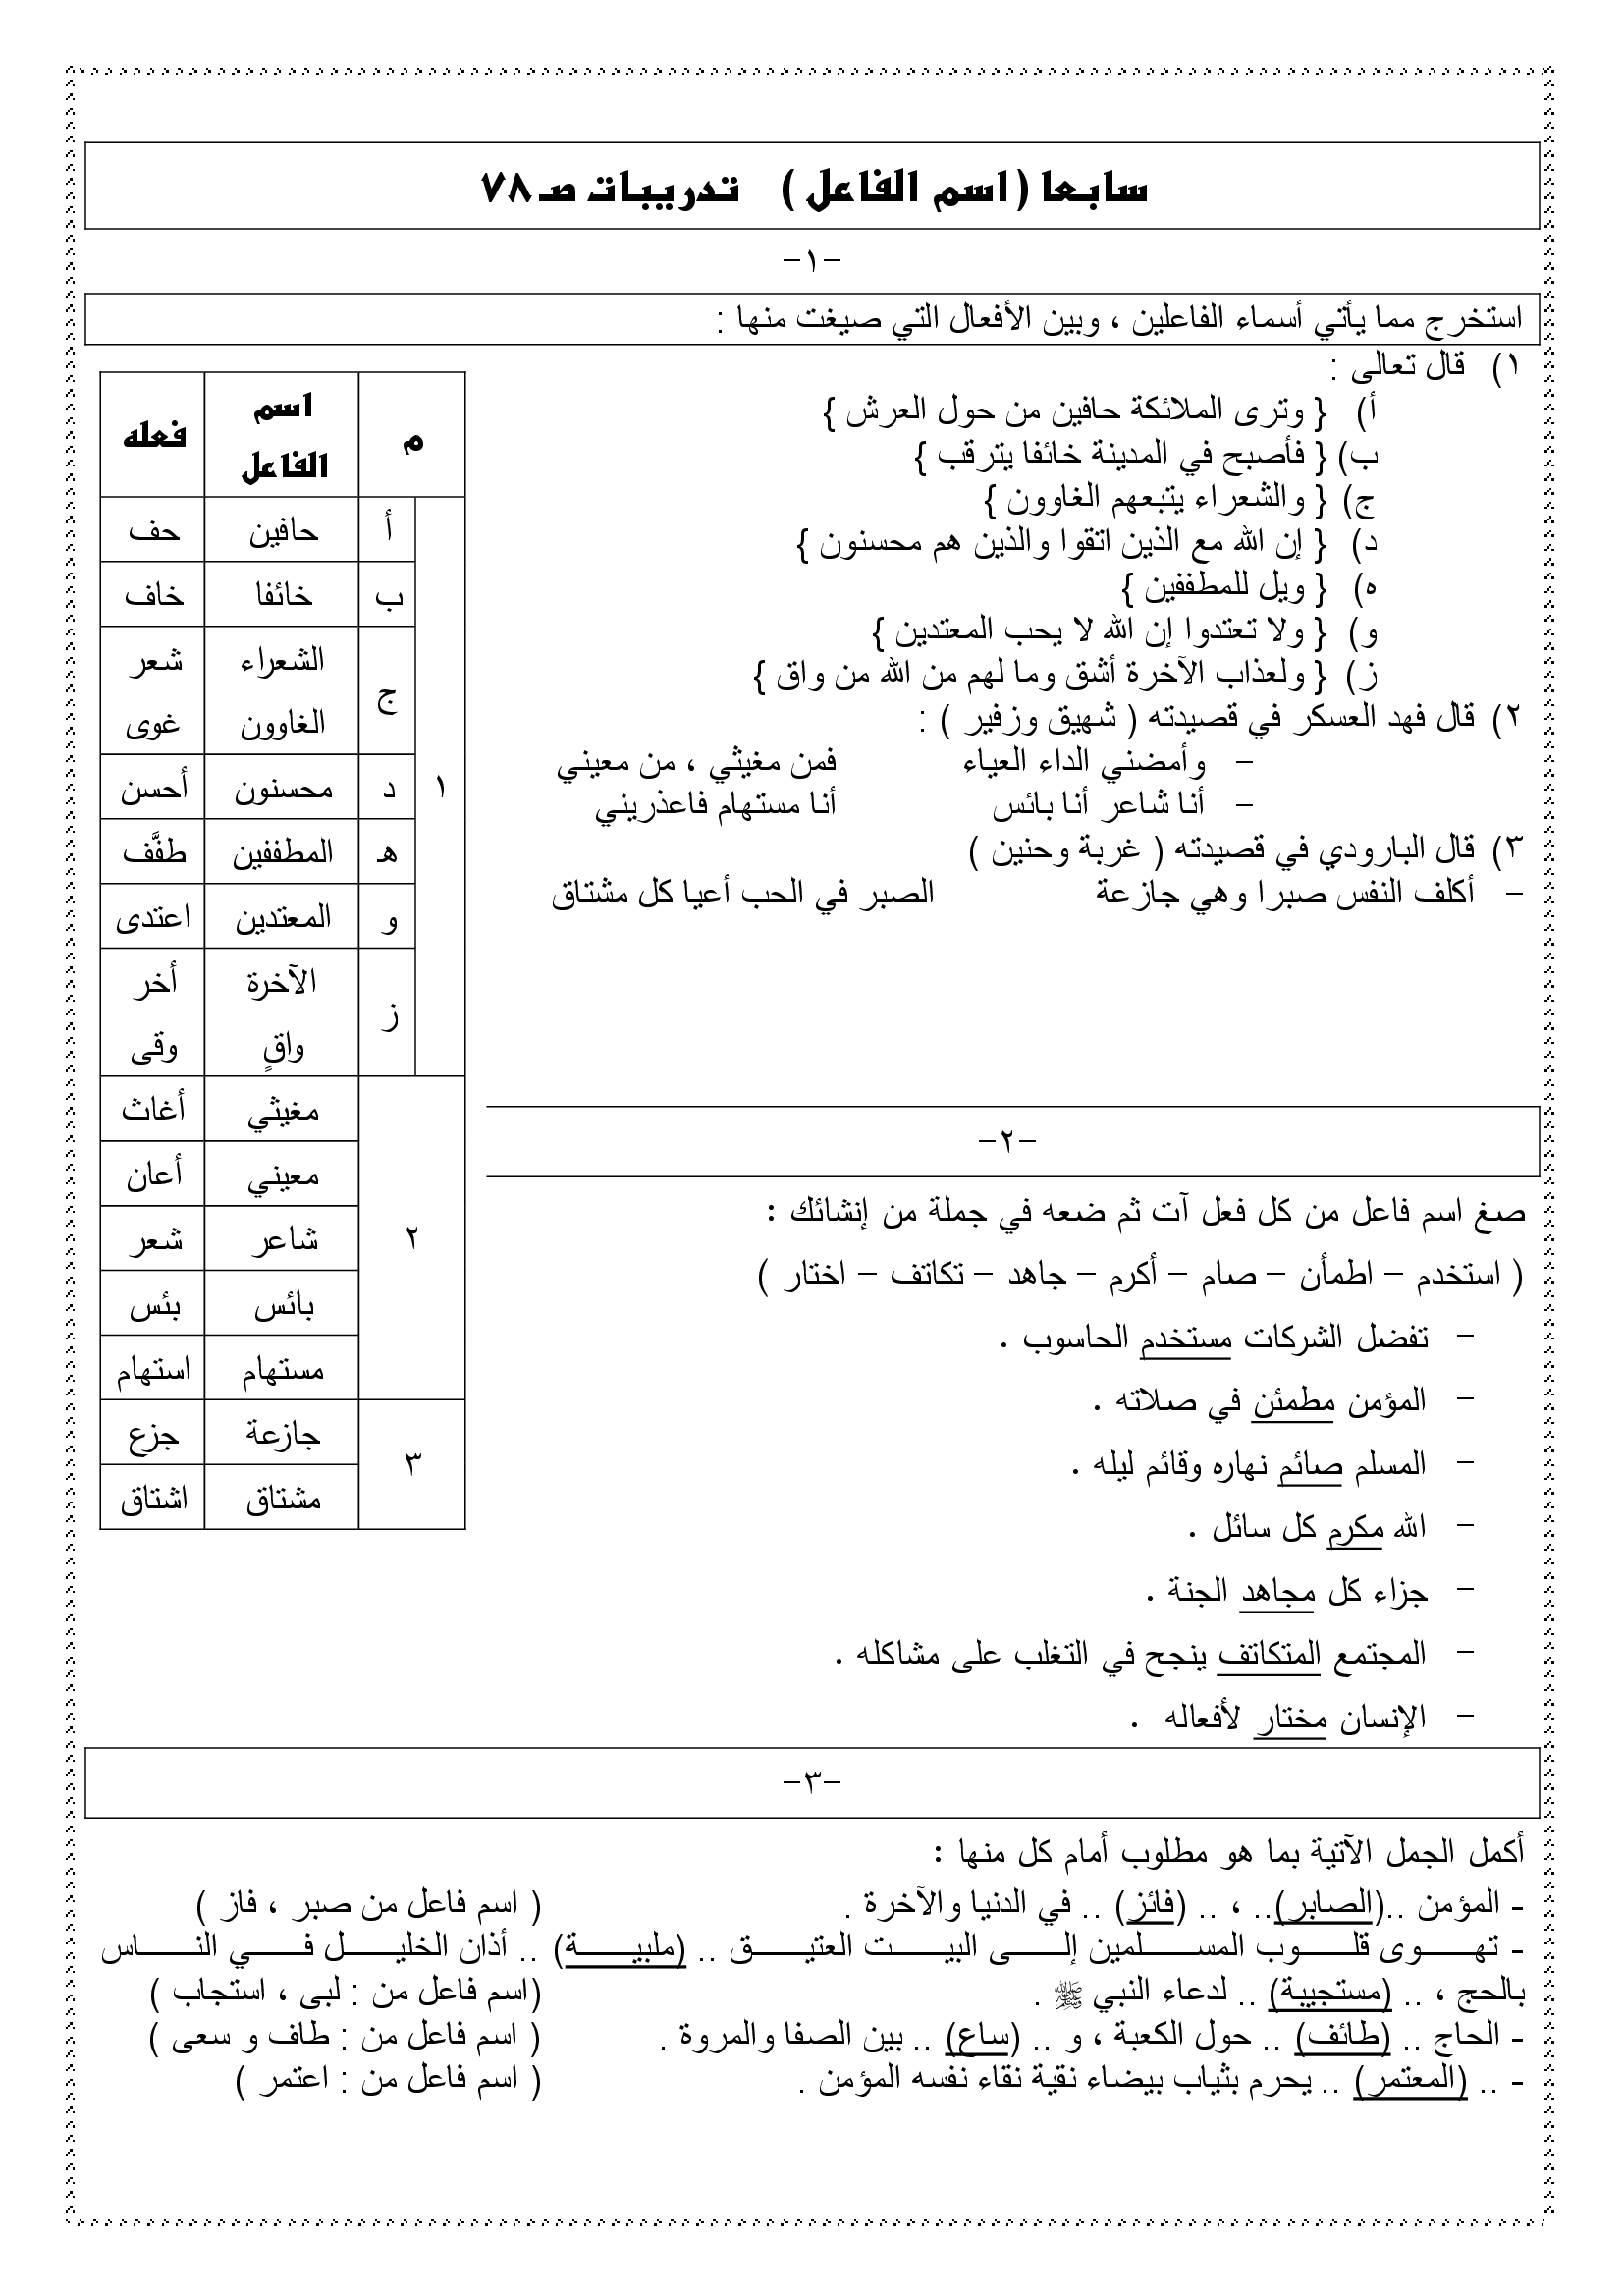 سابعا (اسم الفاعل) تدريبات صـ٧٨
-١-
استخرج مما يأتي أسماء الفاعلين ، وبين الأفعال التي صيغت منها :
١) قال تعالى :
أ) { وترى الملائكة حافين من حول العرش }
ب) { فأصبح في المدينة خائفا يترقب }
ج) { والشعراء يتبعهم الغاوون }
د) { إن الله مع الذين اتقوا والذين هم محسنون }
ه) { ويل للمطففين }
و) { ولا تعتدوا إن الله لا يحب المعتدين }
ز) { ولعذاب الآخرة أشق وما لهم من الله من واق }
٢) قال فهد العسكر في قصيدته ( شهيق وزفير ) :
- وأمضني الداء العياء فمن مغيثي ، من معيني
- أنا شاعر أنا بائس أنا مستهام فاعذريني
٣) قال البارودي في قصيدته ( غربة وحنين )
- أكلف النفس صبرا وهي جازعة الصبر في الحب أعيا كل مشتاق
م اسم الفاعل فعله
١ أ حافين حف
ب خائفا خاف
ج الشعراء شعر
الغاوون غوى
د محسنون أحسن
هـ المطففين طفَّف
و المعتدين اعتدى
ز الآخرة أخر
واقٍ وقى
٢ مغيثي أغاث
معيني أعان
شاعر شعر
بائس بئس
مستهام استهام
٣ جازعة جزع
مشتاق اشتاق
-٢-
صغ اسم فاعل من كل فعل آت ثم ضعه في جملة من إنشائك :
( استخدم – اطمأن – صام – أكرم – جاهد – تكاتف – اختار )
- تفضل الشركات مستخدم الحاسوب .
- المؤمن مطمئن في صلاته .
- المسلم صائم نهاره وقائم ليله .
- الله مكرم كل سائل .
- جزاء كل مجاهد الجنة .
- المجتمع المتكاتف ينجح في التغلب على مشاكله .
- الإنسان مختار لأفعاله .
-٣-
أكمل الجمل الآتية بما هو مطلوب أمام كل منها :
- المؤمن ..(الصابر).. ، .. (فائز) .. في الدنيا والآخرة . ( اسم فاعل من صبر ، فاز )
- تهوى قلوب المسلمين إلى البيت العتيق .. (ملبية) .. أذان الخليل في الناس
بالحج ، .. (مستجيبة) .. لدعاء النبي ﷺ . (اسم فاعل من : لبى ، استجاب )
- الحاج .. (طائف) .. حول الكعبة ، و .. (ساع) .. بين الصفا والمروة . ( اسم فاعل من : طاف و سعى )
- .. (المعتمر) .. يحرم بثياب بيضاء نقية نقاء نفسه المؤمن . ( اسم فاعل من : اعتمر )